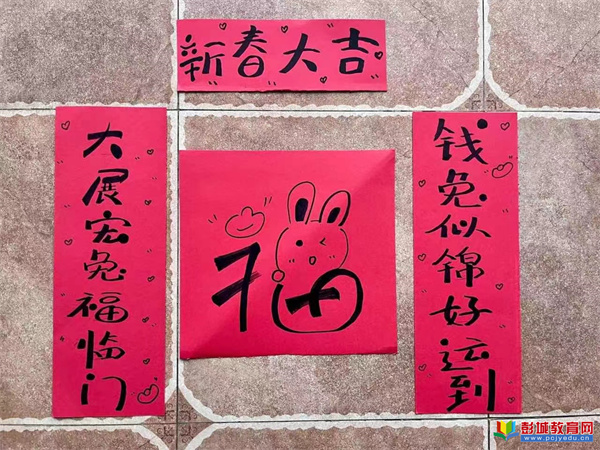 新春大吉
钱兔似锦好运到
福
大展宏兔福临门
彭城教育网
www.pcjyedu.cn